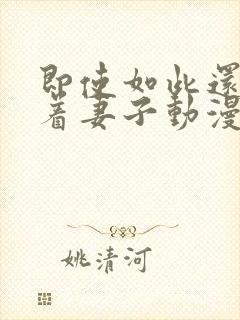 即使如此還
着妻子動漫
姚清河